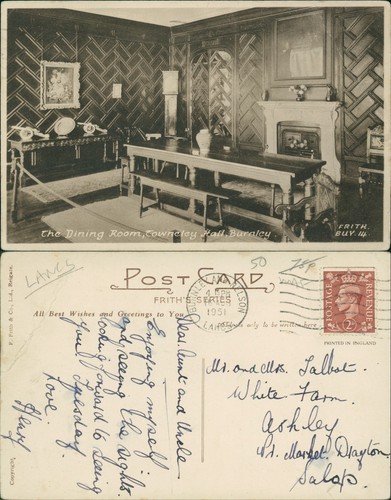 The Dining Room, Towneley Hall, Burnley
FRITH.
BUY. 14
LANCS
50
POST CARD
FRITH'S SERIES
All Best Wishes and Greetings to You
BURNLEY AND NELSON
1951
LANCS
POSTAGE REVENUE
2D
PRINTED IN ENGLAND
F. Frith & Co., Ltd., Reigate.
Copyright
Dear Aunt and Uncle
Enjoying myself
and seeing the sights.
Looking forward to seeing
you Tuesday.
Love.
Mr. and Mrs. Talbot
White Farm.
Ashley
Nr. Market Drayton.
Salop.